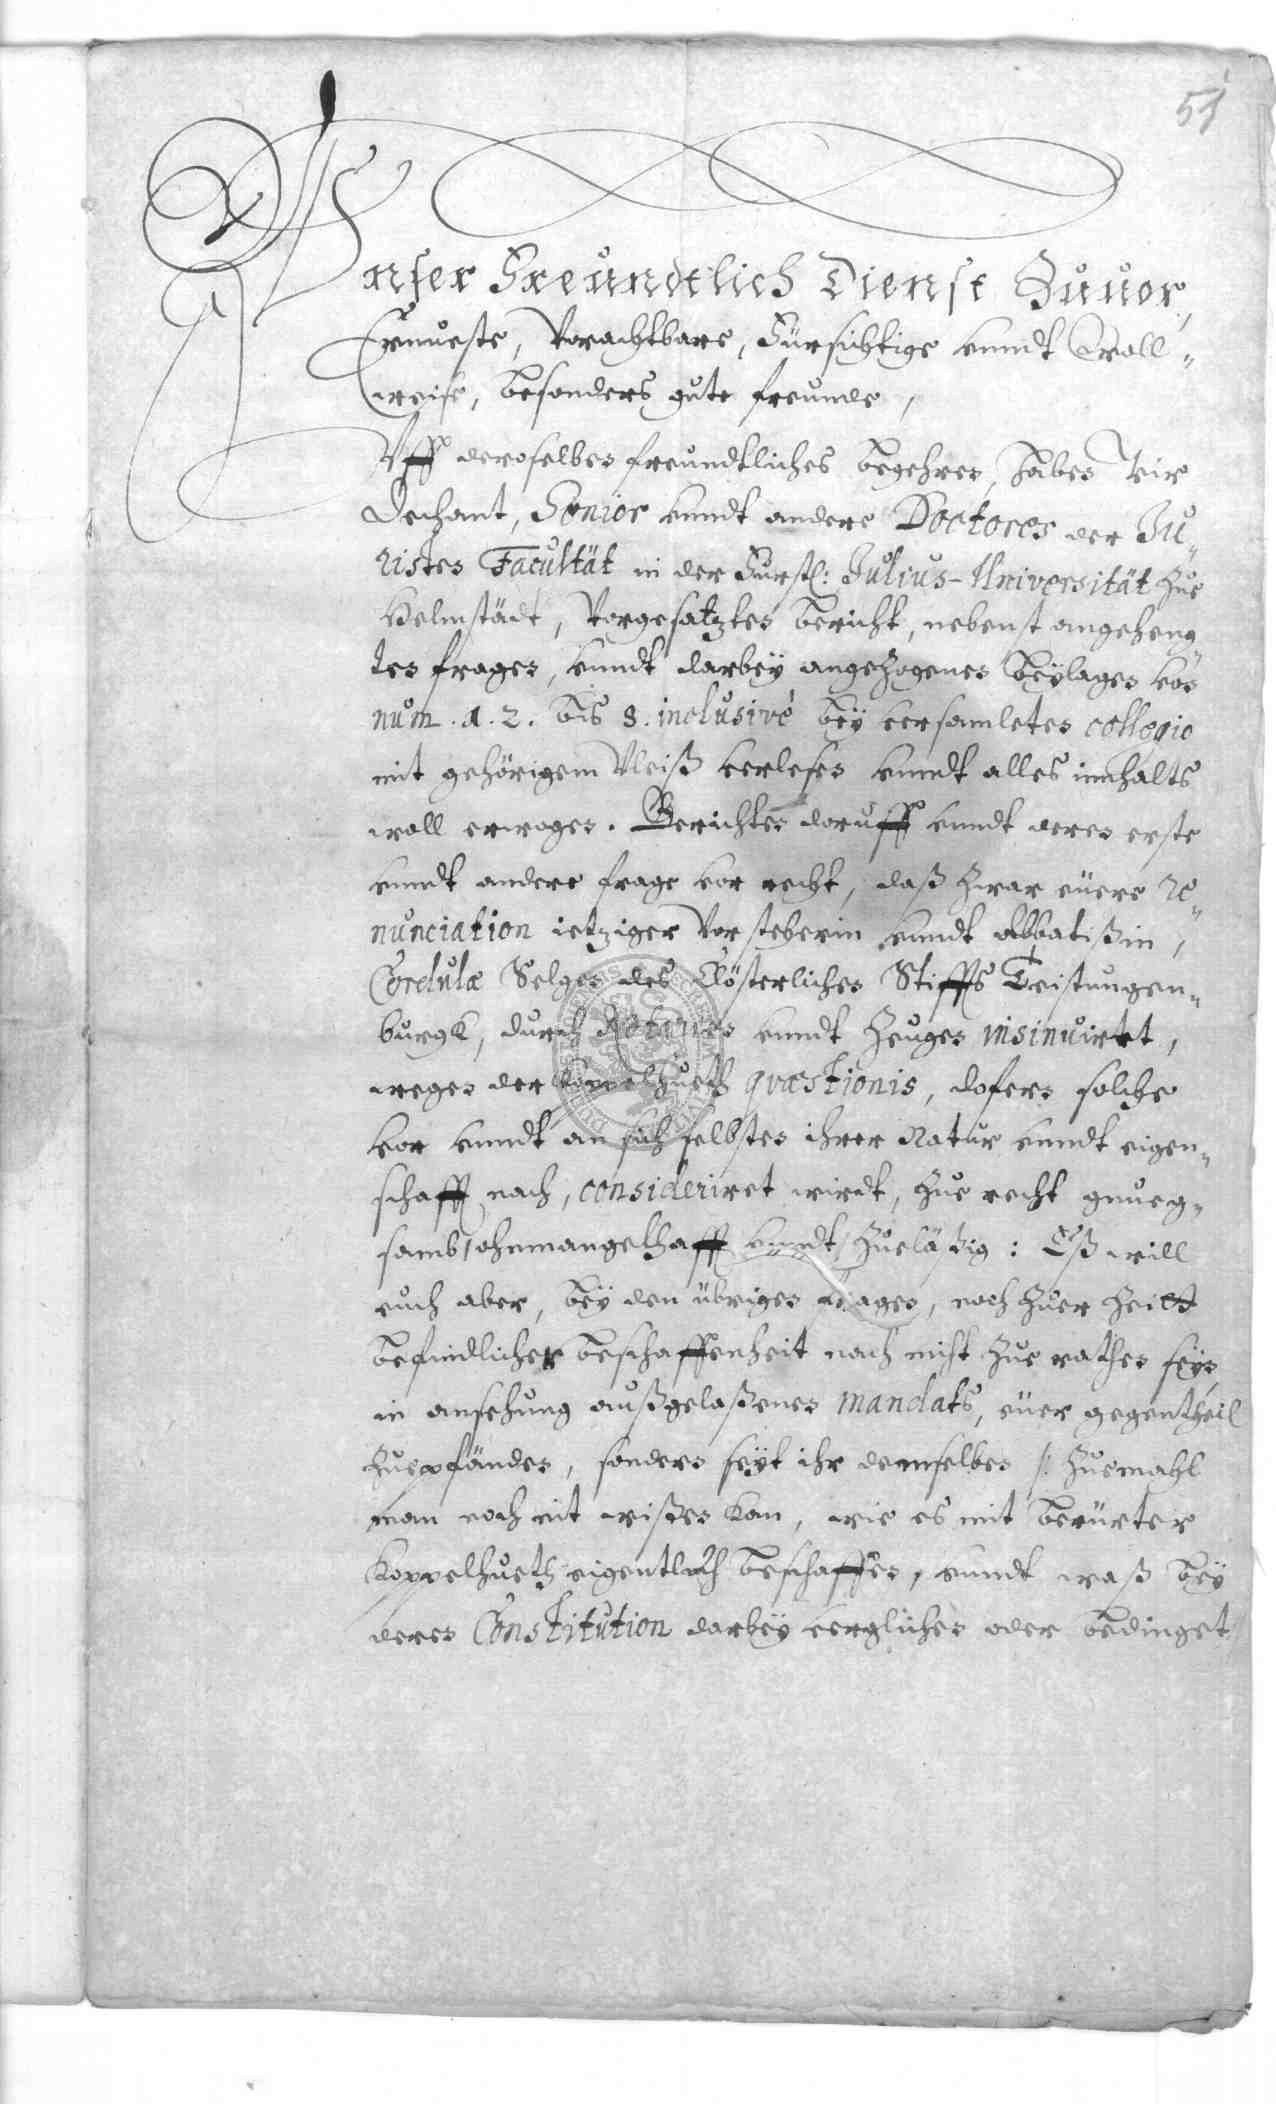 51
Vnser Freundtlich Dienst Zuuor,
Ernueste, Vorachtbare, Fürsichtige vnndt Woll-
weise, besonders gute freunde,
Vff deroselben freundtliches begehren, haben Wir
Dechant, Senior vnndt andere Doctores der Ju-
risten Facultät in der Fürstl: Julius-Universität zue
Helmstädt, Vorgesatzten bericht, nebenst angeheng
ten fragen, vnndt darbey angezogenen beylagen von
num. 1. 2. bis 8. inclusivè bey versamleten collegio
mit gehörigem Vleiß verlesen vnndt alles innhalts
woll erwogen. Berichten doruff vnndt deren erste
vnndt andere frage vor recht, daß zwar eüere re-
nunciation ietziger Vorsteherin vnndt Abbatißin,
Cordulæ Selgen des Clösterlichen Stiffts Teistungen-
burgk, durch Notarien vnndt Zeugen insinuirtet,
wegen der koppelhueth quæstionis, dofern solche
vor vnndt an sich selbsten ihrer Natur vnndt eigen-
schafft nach, consideriret wirdt, zue recht gnueg-
samb, ohnmangelhafft vnndt zueläßig: Eß will
euch aber, bey den übrigen fragen, noch zuer Zeitt
befindlicher beschaffenheit nach nicht zue rathen seyn
in ansehung außgelaßenen mandats, eüer gegentheil
zue pfänden, sondern seyt ihr demselben /: zuemahl
man noch nit wißen kan, wie es mit berürter
Koppelhueth eigentlich beschaffen, vnndt waß bey
deren Constitution darbey verglichen oder bedinget